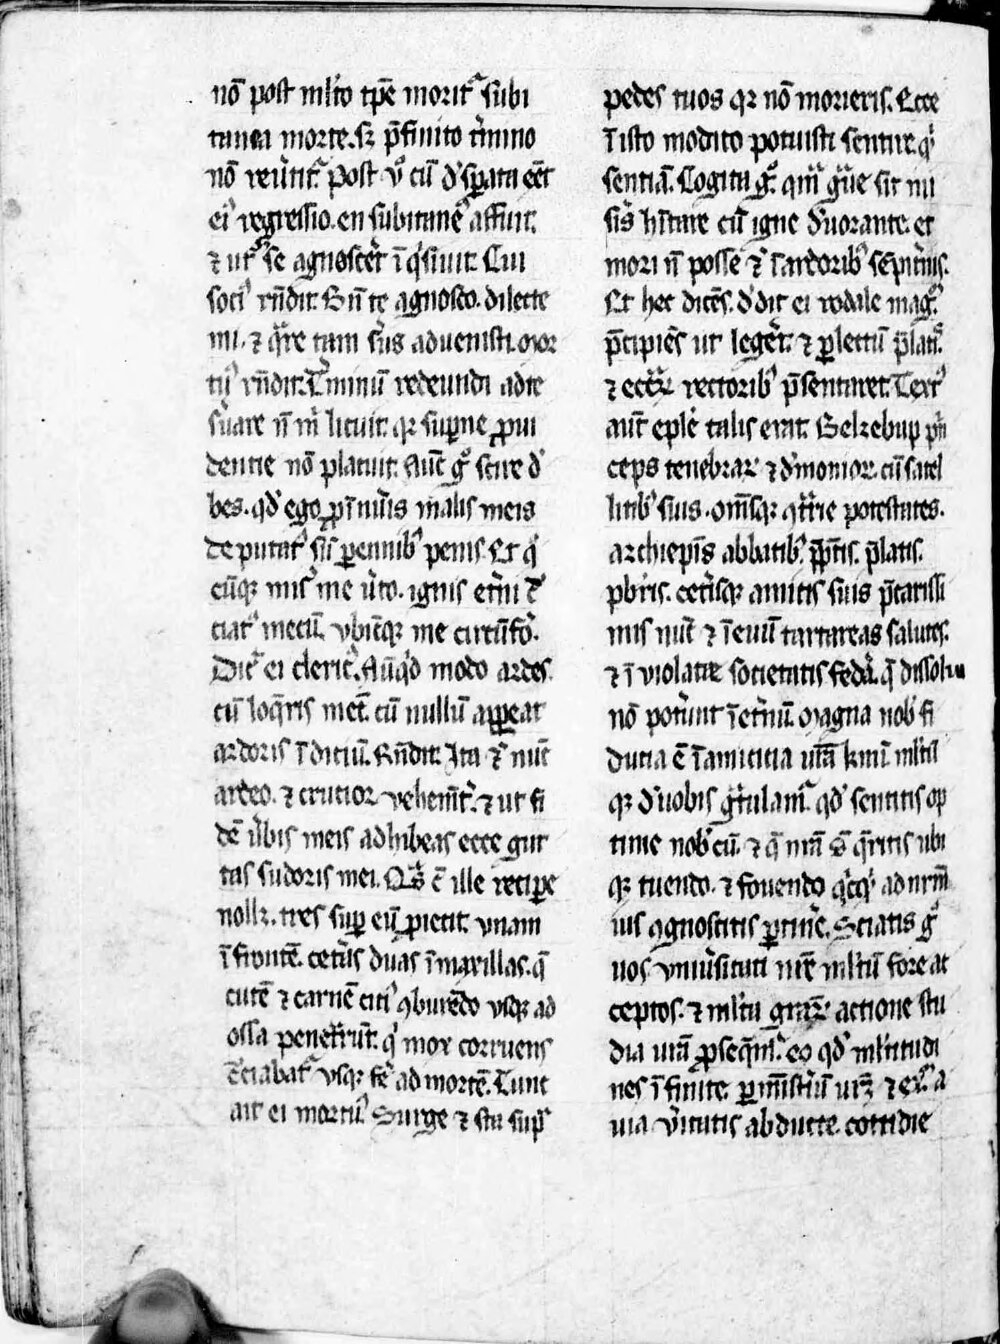 nō post mlto tꝑe morit᷑ subi
tanea morte. sꝫ p̄finito t̓mino
nō reu̓tit᷑. Post v̊ cū d̓sꝑata eēt
ei᷒ regressio. en subitane᷒ affuit.
⁊ ut᷑ se agnoscēt ī q̓siuit. Cui
soci᷒ rn̄dit. Bn̄ te agnosco. dilecte
mi. ⁊ q̄re tam s̓us aduenisti. Mor
tu᷒ rn̄dit. T̓minū redeundi ad te
s̓uare n̄ m̓ licuit. qꝛ suꝑne ꝓui
dentie nō placuit. Aūc g̊ scire d̓
bes. qd̓ ego ꝓ īnu̓is malis meis
deputat᷒ sū ꝑennibꝫ penis. Et q̊
cūqꝫ mis̓ me u̓to. ignis et̓ni
ciat᷒ mecū. vbicūqꝫ me circūfo̓.
Dic̄ ei cleric᷒. Nūqd̓ modo ardes.
cū loq̄ris mecū. cū nullū appeat
ardoris īdiciū. Rn̄dit. Ita ⁊ nūc
ardeo. ⁊ crucior vehemt̓. ⁊ ut fi
dē u̓bis meis adhibeas ecce gut
tas sudoris mei. Q̊s c̄ ille reciꝑe
nollꝫ. tres suꝑ eū ꝓiecit. vnam
ī frontē. cet̓as duas ī maxillas. q̄
cutē ⁊ carnē citi᷒ ꝯburēdo vsqꝫ ad
ossa penetrūt. q̓ mox corruens
c̓ciabat᷑ vsqꝫ fe̓ ad mortē. Tunc
ait ei mortu᷒. Surge ⁊ sta suꝑ
pedes tuos qꝛ nō morieris. Ecce
ī isto modico potuisti sentire. q̓
sentiā. Cogita g̊. qm̄ g̓ue sit mi
sis̓ hītare cū igne d̓uorante. et
mori n̄ posse ⁊ ī ardoribꝫ sēpit̓nis.
Et hec dicēs. d̓dit ei rodale mag᷒.
p̄cipiēs ut leger̓. ⁊ ꝑlectū p̄lat᷒.
⁊ ecc̄aꝝ rectoribꝫ p̄sentaret. Text᷒
aut̄ eple talis erat. Belzebup p̓n
ceps tenebraꝝ ⁊ d̓monioꝝ. cū satel
litibꝫ suis. om̄sqꝫ ꝯt̓rie potestates.
archiep̄is abbatibꝫ. p̄p̄tis. p̄latis.
p̄bris. cet̓isqꝫ amicis suis p̄carissi
mis nūc ⁊ ī euū tartareas salutes.
⁊ ī violate societatis fed̓a. q̄ dissolui
nō pot̓unt ī et̓nū. Magna nob̓ fi
ducia ē ī amicicia ur̄a kmi. ml̄tū
qꝫ d̓ uobis g̓tulam᷒. qd̓ sentitis op
time nob̓cū. ⁊ q̄ nr̄a s̄ q̄ritis ubi
qꝫ tuendo. ⁊ fouendo q̓cqd̓ ad nr̄m
ius ꝯgnoscitis ꝑtin̓e. Sciatis g̊
uos vniu̓sitati nr̄e ml̄tū fore ac
ceptos. ⁊ ml̄ta graꝝ actione stu
dia ur̄a ꝓseq̄m᷑. eo qd̓ ml̄titudi
nes īfinite. ꝑ mīst̓iū ur̄ꝫ ⁊ ex̓ a
uia v̓itatis abducte. cottidie